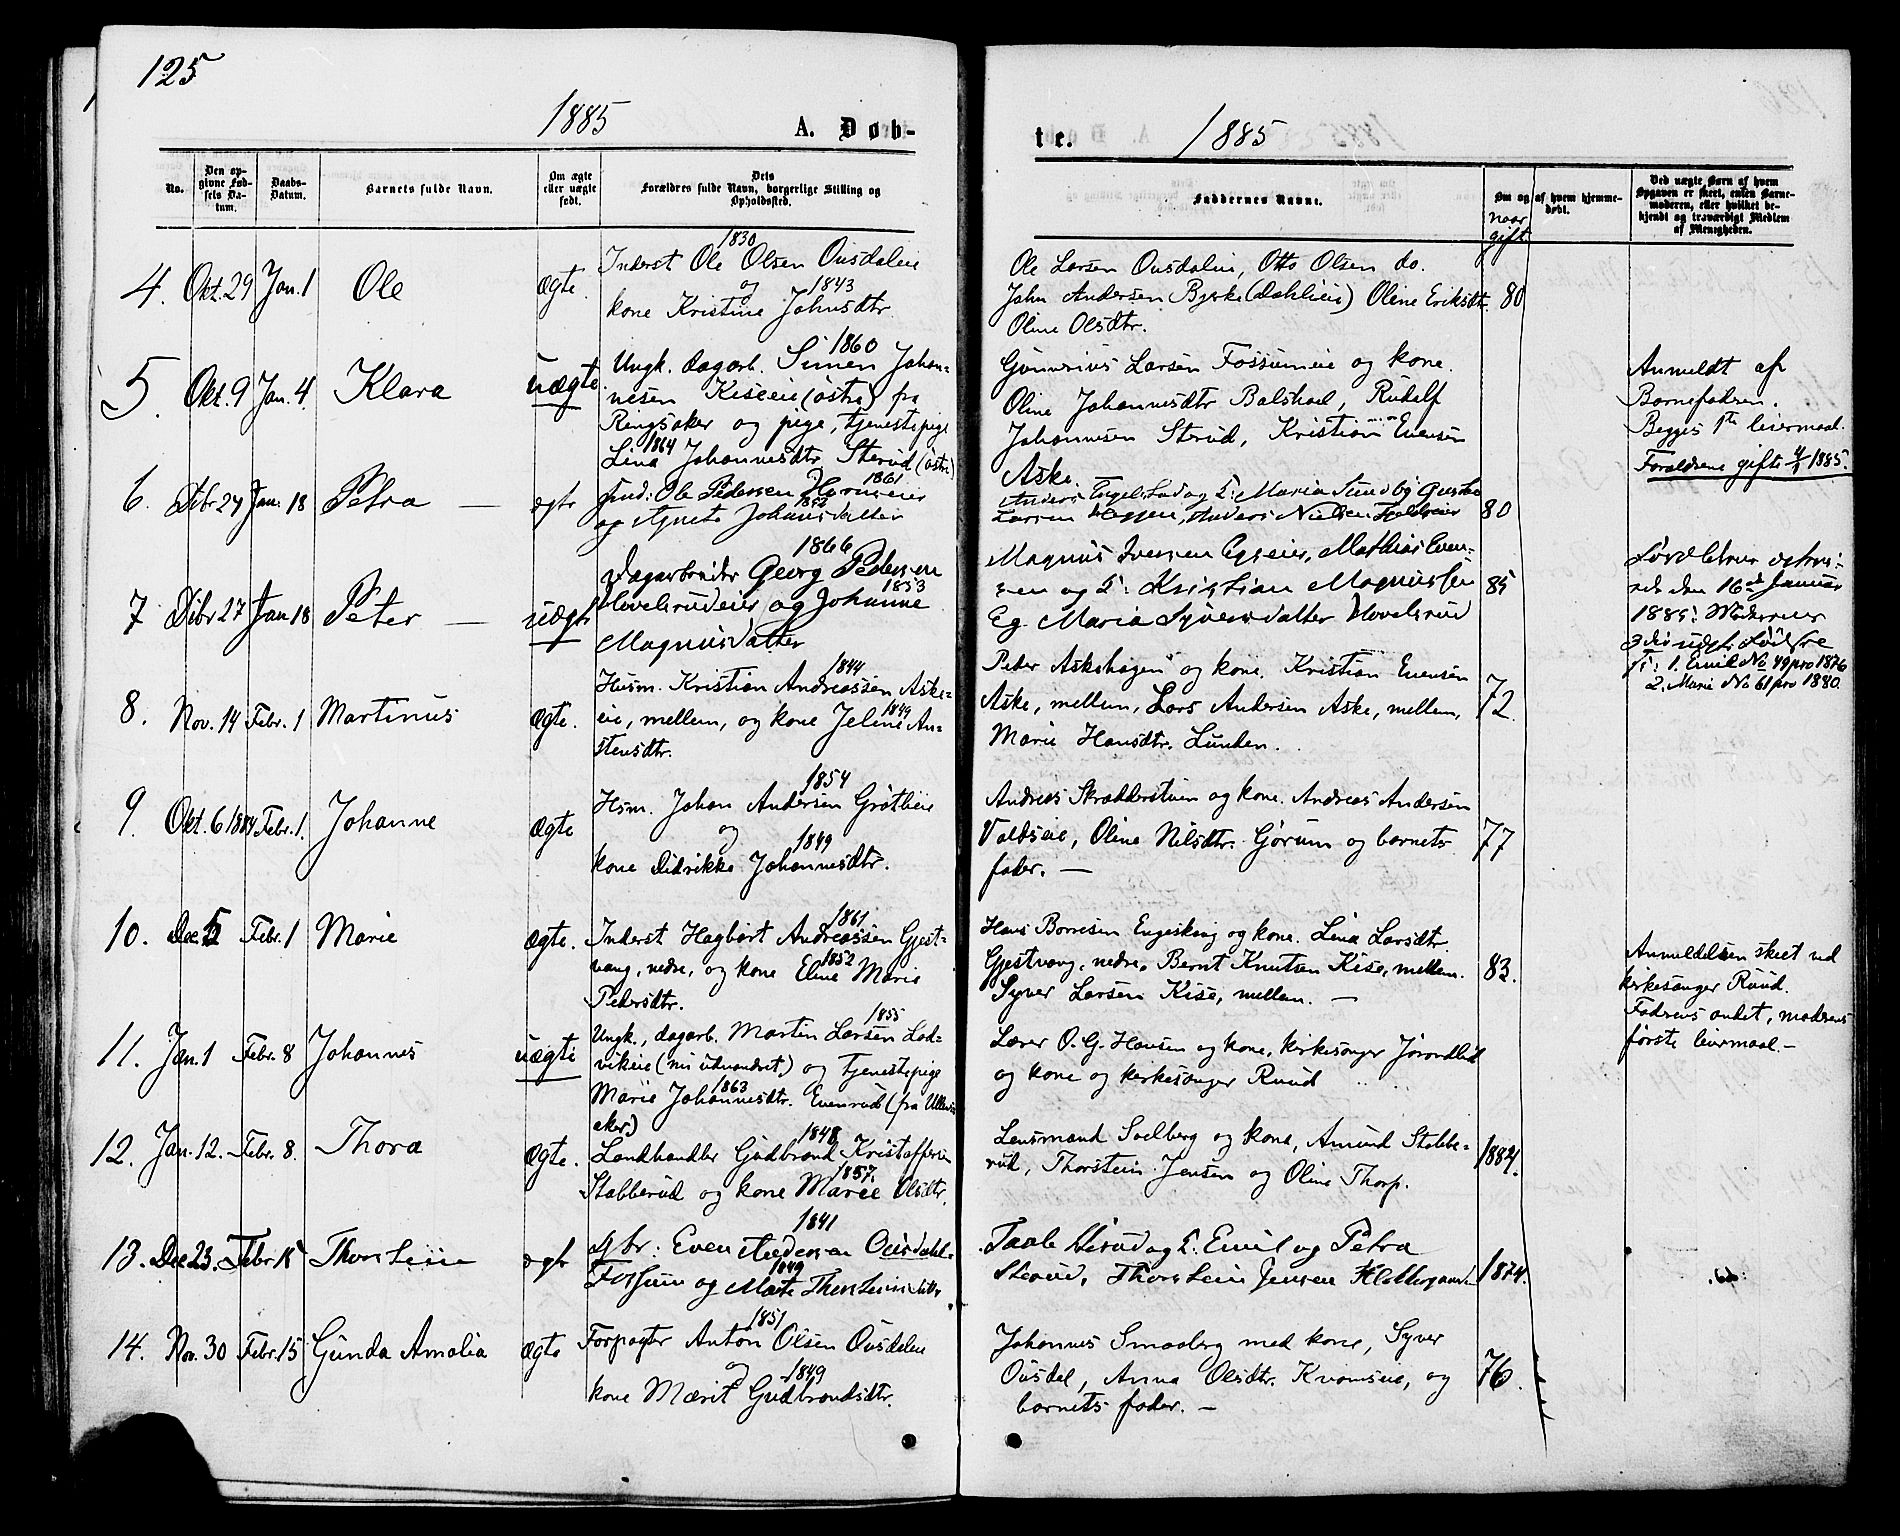 125
1885
A. Døb-
No.
Den op-
givne Fød-
sels Da-
tum.
Daabs-
Datum.
Barnets fulde Navn.
Om ægte
eller uægte
født.
Dets
Forældres fulde Navn, borgerlige Stilling og
Opholdssted.
4. Okt. 29 Jan. 1 Ole ægte.
1830
Inderst Ole Olsen Ousdaleie
og 1843
kone Kristine Johnsdtr.
5. Okt. 9 Jan. 4. Klara uægte.
1860
Ungk. dagarb. Simen Johan-
nesen Kiseeie (østre) fra
Ringsaker og pige, tjenestepige
1864
Lina Johannesdtr Sterud (østre)
6. Dcbr 24 Jan. 18 Petra — ægte
1861
Ole Pedersen
og Agnete Johansdatter
7 Dcbr 27 Jan 18 Peter — uægte
1866
Dagarbeider Georg Pedersen
1853
Hovelsrudeier og Johanne
Magnusdatter
8. Nov. 14 Febr. 1 Martinus ægte.
1844
Husm. Kristian Andreassen Aske-
1849
eie, mellem, og kone Jeline An-
stensdtr.
9. Okt. 6 1884 Febr. 1. Johanne ægte
1854
Hsm. Johan Andersen Grøtlieie
og 1849
kone Didrikke Johannesdtr.
10. Dec. 5 Febr. 1 Marie ægte.
1861
Inderst Hagbart Andreassen Gjest-
1852
vang, nedre, og kone Eline Marie
Pedersdtr.
11. Jan. 1 Febr. 8 Johannes uægte
1855
Ungk., dagarb. Martin Larsen Lod-
vikeie (nu udvandret.) og tjenestepige
1863
Marie Johannesdtr. Evenrud (fra Ullens
aker.)
12. Jan. 12. Febr. 8. Thora ægte.
1848
Landhandler Gudbrand Kristoffersen
1857.
Stabberud og kone Marie Olsdtr.
13. Dec 23. Febr 15 Thorstein ægte
1841
Gbr: Even Andersen Ousdahl-
1849
Fossum og Marte Thorsteinsdatter
14. Nov. 30 Febr. 15 Gunda Amalia ægte
1851
Forpagter Anton Olsen Ousdaleie
og 1849
kone Marit Gudbrandsdtr.
te.
1885
Faddernes Navne.
Om og af hvem hjemme-
døbt.
naar
gift
Ved uægte Børn af hvem
Opgaven er skeet, enten Barne-
moderen, eller hvilket be-
kjendt og troværdigt Medlem
af Menigheden.
Ole Larsen Ousdaleie, Otto Olsen do.
John Andersen Bjerke (Dahlieie) Oline Eriksdtr. 80
Oline Olsdtr.
Gunnerius Larsen Fossumeie og kone.
Oline Johannesdtr Balshol, Rudolf
Johannesen Sterud, Kristian Evensen
Aske.
Anmeldt af
Barnefaderen.
Begges 1ste leiermaal.
Forældrene gifte 4/1 1885.
Maria Sundby
Larsen Anders Nielsen 80
Magnus Iversen Egseier, Mathias Even-
sen og F: Kristian Magnussen 85
Eg. Maria Syversdatter Hovelsrud
den 16de Januar
1885: Moderens
1. Emil No 49 pro 1876
2. Marie No 61 pro 1880.
Peter Askehagen og kone. Kristian Evensen
Aske, mellem, Lars Andersen Aske, mellem, 72.
Marie Hansdtr. Lunden.
Andreas Skrædderstuen og kone. Andreas Andersen
Voldseie, Oline Nilsdtr. Gjørum og barnets 77
fader. —
Hans Borresen Engeskoug og kone. Lina Larsdtr.
Gjestvang, nedre, Bernt Knutsen Kise, mellem. 83.
Syver Larsen Kise, mellem. —
Lærer O. G. Hansen og kone, kirkesanger Jørandlid
og kone og kirkesanger Ruud
Anmeldelsen skeet ved
kirkesanger Ruud.
Faderens andet, moderens
første leiermaal. —
Lensmand Solberg og kone, Amund Stabbe-
rud, Thorstein Jensen og Oline Thorp. 1884.
Emil og Petra
Sterud, Thorstein Jensen 1874.
Johannes Smaaberg med kone, Syver
Ousdal, Anna Olsdtr. Kvamseie, og 76.
barnets fader. —